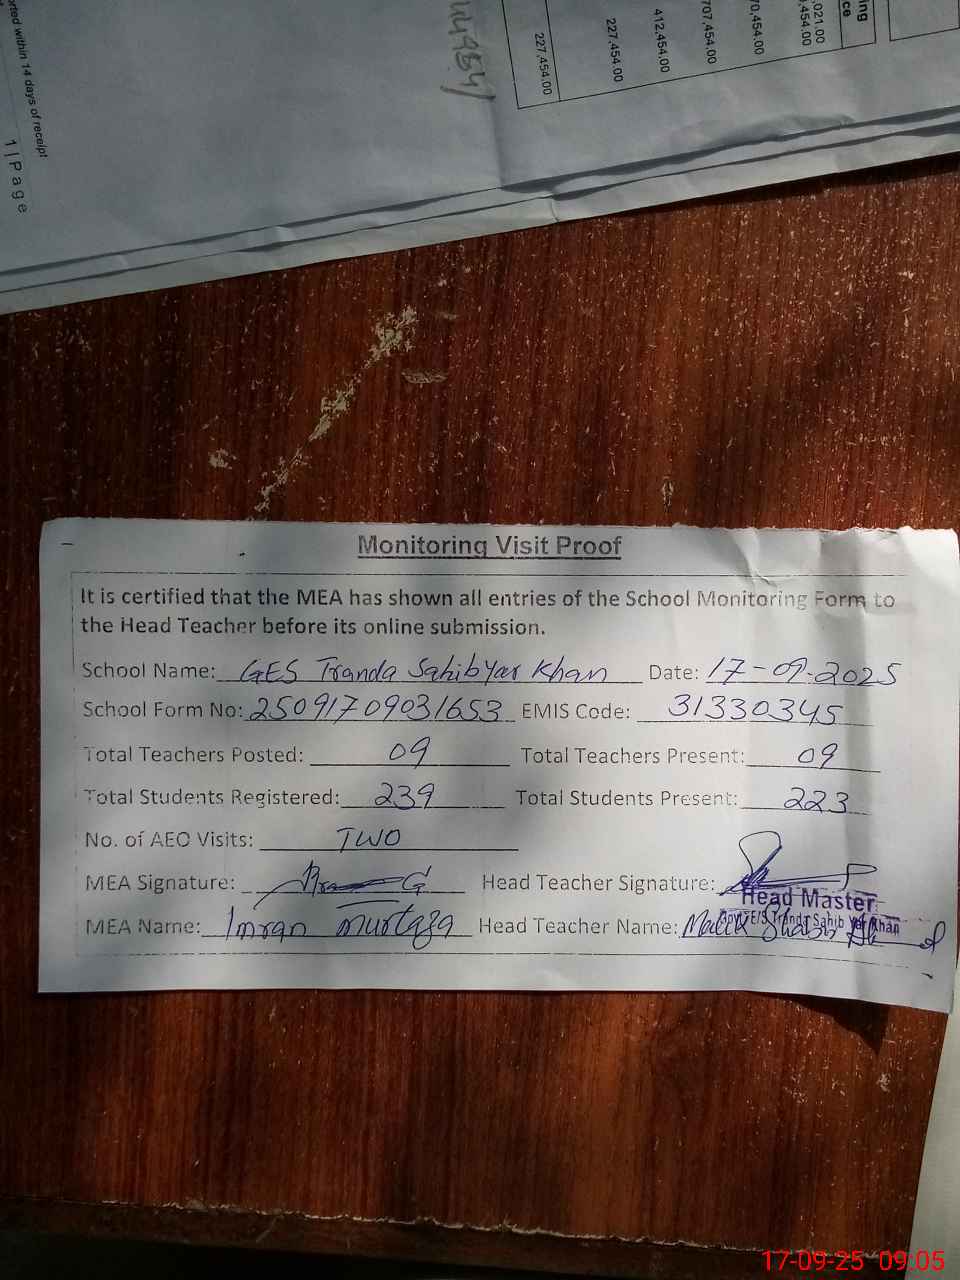 orted within 14 days of receipt
1 | P a g e
227,454.00
227,454.00
412,454.00
707,454.00
70,454.00
,454.00
,021.00
ing
ce
Monitoring Visit Proof
It is certified that the MEA has shown all entries of the School Monitoring Form to
the Head Teacher before its online submission.
School Name: GES Tranda Sahib Yar Khan Date: 17-09-2025
School Form No: 25091709031653 EMIS Code: 31330345
Total Teachers Posted: 09 Total Teachers Present: 09
Total Students Registered: 239 Total Students Present: 223
No. of AEO Visits: TWO
MEA Signature: Head Teacher Signature:
Head Master
Govt. E/S Tranda Sahib Yar Khan
MEA Name: Imran murtaza Head Teacher Name: Malik
17-09-25 09:05